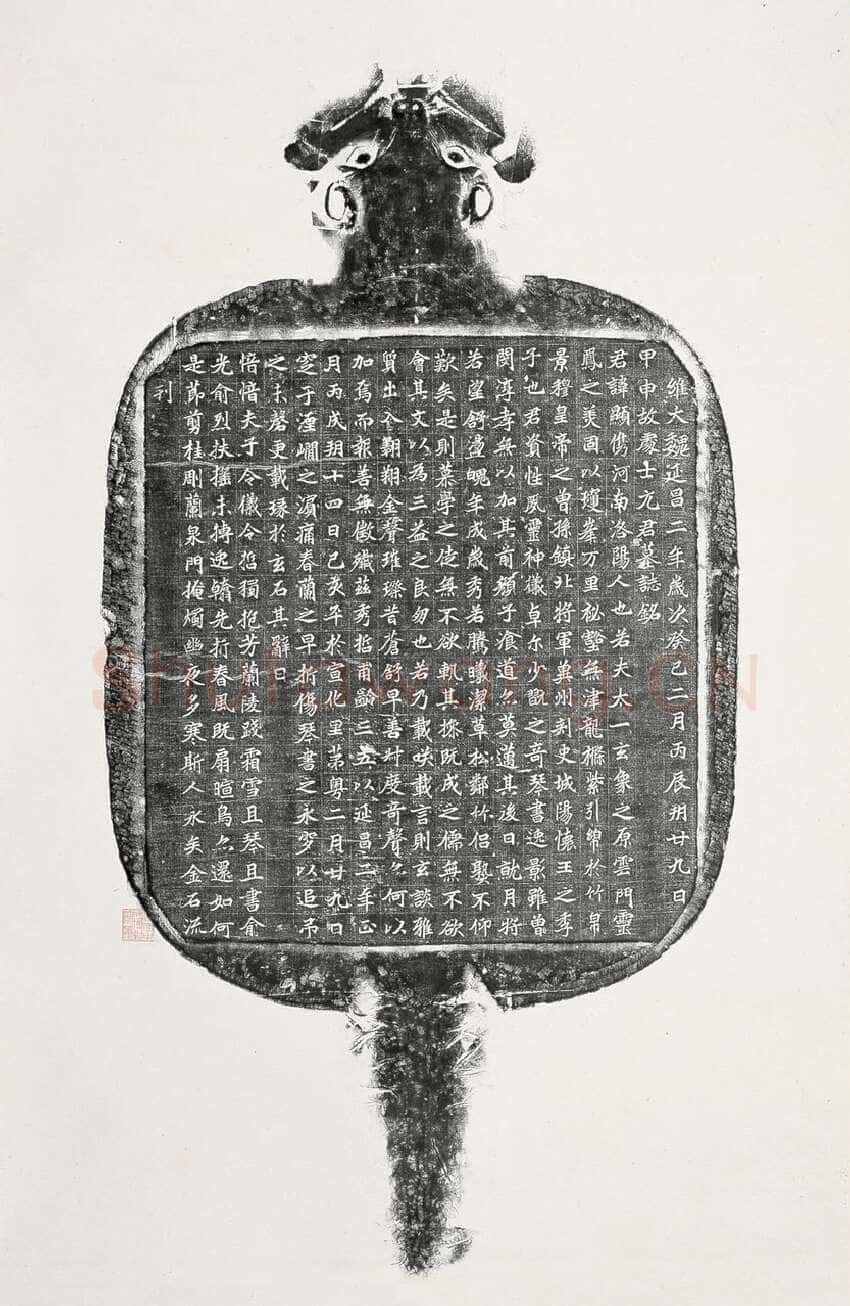 維大魏延昌二年歲次癸巳二月丙辰朔廿九日
甲申故處士元君墓誌銘
君諱顯儁河南洛陽人也若夫太一玄象之原雲門靈
鳳之美固以瓊峯万里秘壑無津龍檦紫引綿於竹帛
景穆皇帝之曾孫鎮北將軍冀州刺史城陽懷王之季
子也君資性夙靈神儀卓尒少翫之奇琴書逸景雖曾
閔淳孝無以加其前顏子飡道亦莫邁其後日就月將
若望舒盪魄年成歲秀若騰曦潔草松鄰竹侶娶不仰
歎矣是則慕學之徒無不欲軌其操既成之儒無不欲
會其文以為三益之良朋也若乃載咲載言則玄談雅
質出入翱翔金聲璀璨昔蒼舒早善叶度奇聲亦何以
加焉而報善無徵殲茲秀哲甫齡三五以延昌二年正
月丙戌朔十四日己亥卒於宣化里第粵二月廿九日
窆于瀍澗之濱痛春蘭之早折傷琴書之永穸以追弔
之未罄更載琢於玄石其辭曰
愔愔夫子令儀令哲獨抱芳蘭陵踐霜雪且琴且書俞
光俞烈扶搖未搏逸翰先折春風既扇暄鳥亦還如何
是節剪桂剛蘭泉門掩燭幽夜多寒斯人永矣金石流
刊
Shufawang.CN